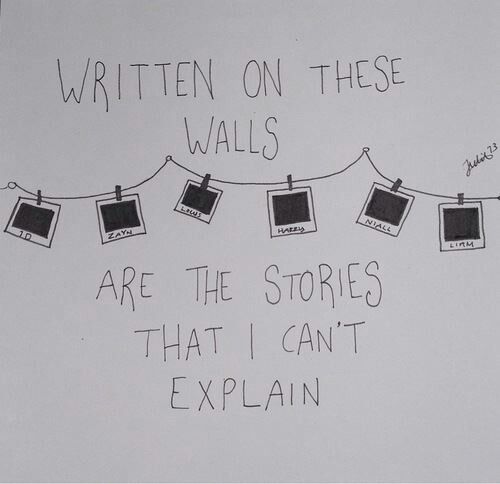 WRITTEN ON THESE
WALLS
1D
ZAYN
LOUIS
HARRY
NIALL
LIAM
ARE THE STORIES
THAT I CAN'T
EXPLAIN